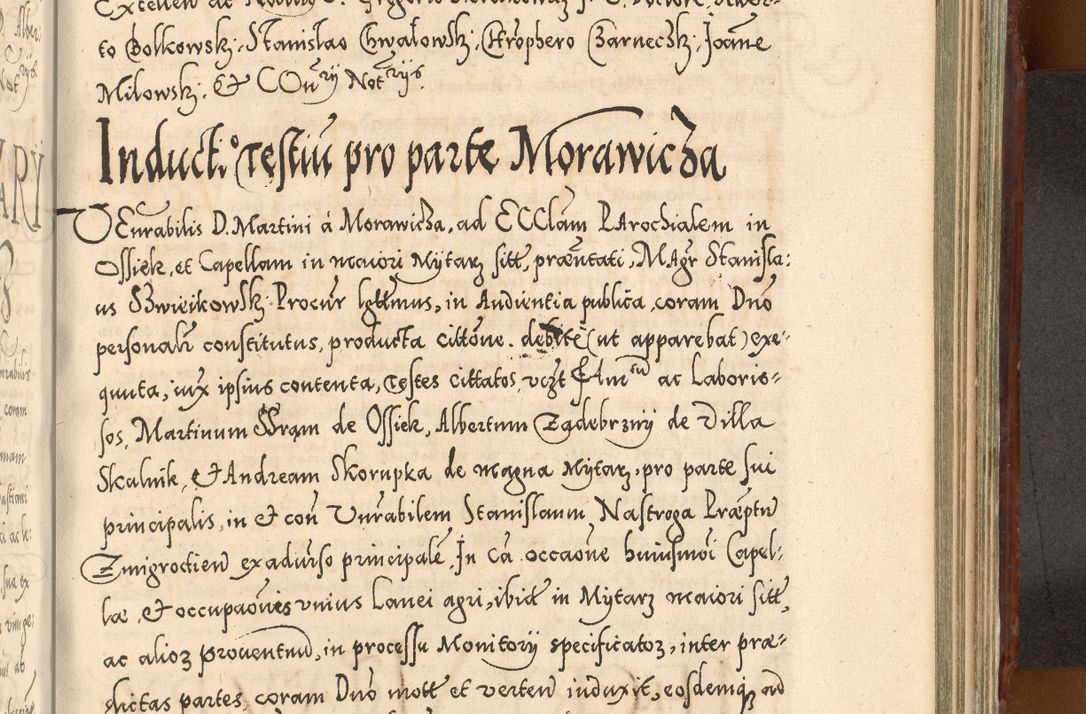 to Bolkowskj, Stanislao Chwalowskj, Chrophero Czarneczkj, Joañe
Milowskj. Et COur̃ij Notr̃ijs.
Inducti.o Testiũ pro parte Morawicza
VEnrabilis D. Martini à Morawicza, ad ECClam̃ PArochialem in
Ossiek, et Capellam in maiori Mÿtarz sitt̃, præntati, MAgr̃ Stanisla:
us Swieikowskj Procur̃ lgttmus, in Audientia publica, coram Dnõ
personalr̃ constitutus, producta cittõne. debite (ut apparebat) exe-
quuta, iux ipsius contenta, Testes cittatos, vczt FAmtũ ac Laborio-
sos, Martinum de Ossiek, Albertum Zadebrznÿ de Villa
Skalnik, Et Andream Skorupka de magna Mÿtarz, pro parte sui
principalis, in et con̄ Vnrabilem Stanislaum Nastroga Præptũ
Zmigrodien̄ exaduiso principalẽ. In cã occaõne huiusmõi Capel-
læ, Et occupaõnis vnius Lanei agri, ibid̃ in Mÿtarz maiori sitt̃,
ac alioz prouentuũ, in processu Monitorÿ specificatoz, inter præ-
dictas partes, coram Dnõ mott̃ et verten̄ induxit, eosdemq ad